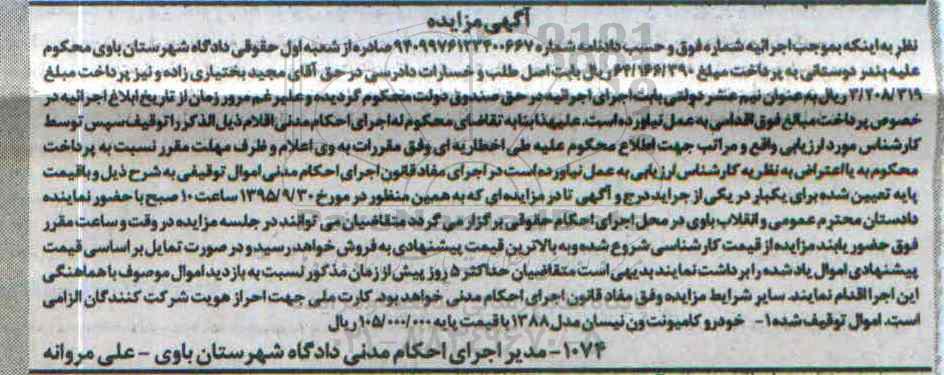 آگهی مزایده
نظر به اینکه بموجب اجرائیه شماره فوق و حسب دادنامه شماره ۹۴۰۹۹۷۶۱۲۳۴۰۰۶۶۷ صادره از شعبه اول حقوقی دادگاه شهرستان باوی محکوم
علیه بندر دوستانی به پرداخت مبلغ ۶۴/۱۶۶/۳۹۰ ریال بابت اصل طلب و خسارات دادرسی در حق آقای مجید بختیاری زاده و نیز پرداخت مبلغ
۳/۲۰۸/۳۱۹ ریال به عنوان نیم عشر دولتی بابت اجرای اجرائیه در حق صندوق دولت محکوم گردیده و علیرغم مرور زمان از تاریخ ابلاغ اجرائیه در
خصوص پرداخت مبالغ فوق اقدامی به عمل نیاورده است. علیهذا بنا به تقاضای محکوم له اجرای احکام مدنی اقلام ذیل الذکر را توقیف سپس توسط
کارشناس مورد ارزیابی واقع و مراتب جهت اطلاع محکوم علیه طی اخطاریه ای وفق مقررات به وی اعلام و ظرف مهلت مقرر نسبت به پرداخت
محکوم به یا اعتراض به نظریه کارشناس ارزیابی به عمل نیاورده است در اجرای مفاد قانون اجرای احکام مدنی اموال توقیفی به شرح ذیل و با قیمت
پایه تعیین شده برای یکبار در یکی از جراید درج و آگهی تا در مزایده ای که به همین منظور در مورخ ۱۳۹۵/۹/۳۰ ساعت ۱۰ صبح با حضور نماینده
دادستان محترم عمومی و انقلاب باوی در محل اجرای احکام حقوقی برگزار می گردد متقاضیان می توانند در جلسه مزایده در وقت و ساعت مقرر
فوق حضور یابند مزایده از قیمت کارشناسی شروع شده و به بالاترین قیمت پیشنهادی به فروش خواهد رسید و در صورت تمایل بر اساسی قیمت
پیشنهادی اموال یاد شده را برداشت نمایند بدیهی است متقاضیان حداکثر ۵ روز پیش از زمان مذکور نسبت به بازدید اموال موصوف با هماهنگی
این اجرا اقدام نمایند. سایر شرایط مزایده وفق مفاد قانون اجرای احکام مدنی خواهد بود. کارت ملی جهت احراز هویت شرکت کنندگان الزامی
است. اموال توقیف شده ۱- خودرو کامیونت ون نیسان مدل ۱۳۸۸ با قیمت پایه ۱۰۵/۰۰۰/۰۰۰ ریال
۱۰۷۴- مدیر اجرای احکام مدنی دادگاه شهرستان باوی - علی مروانه